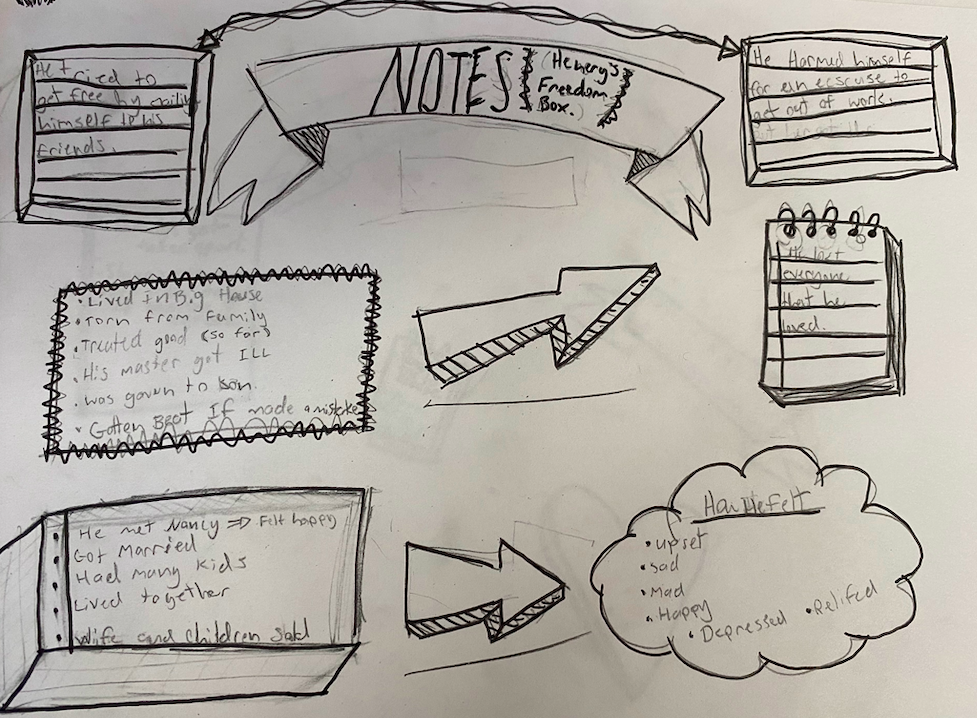 NOTES
(Henery's
Freedom
Box.)
He tried to
get free by mailing
himself to his
friends.
He Harmed himself
for an ecscruse to
get out of work.
• Lived In Big House
• Torn from Family
• Treated good (so far)
• His master got ILL
• was gaven to son.
• Gotten Beat If made a mistake
He lost
everyone
that he
loved.
He met Nancy => Felt happy
Got Married
Had many kids
Lived together
Wife and children Sold
How He Felt
• upset
• sad
• Mad
• Happy
• Depressed • Relifed